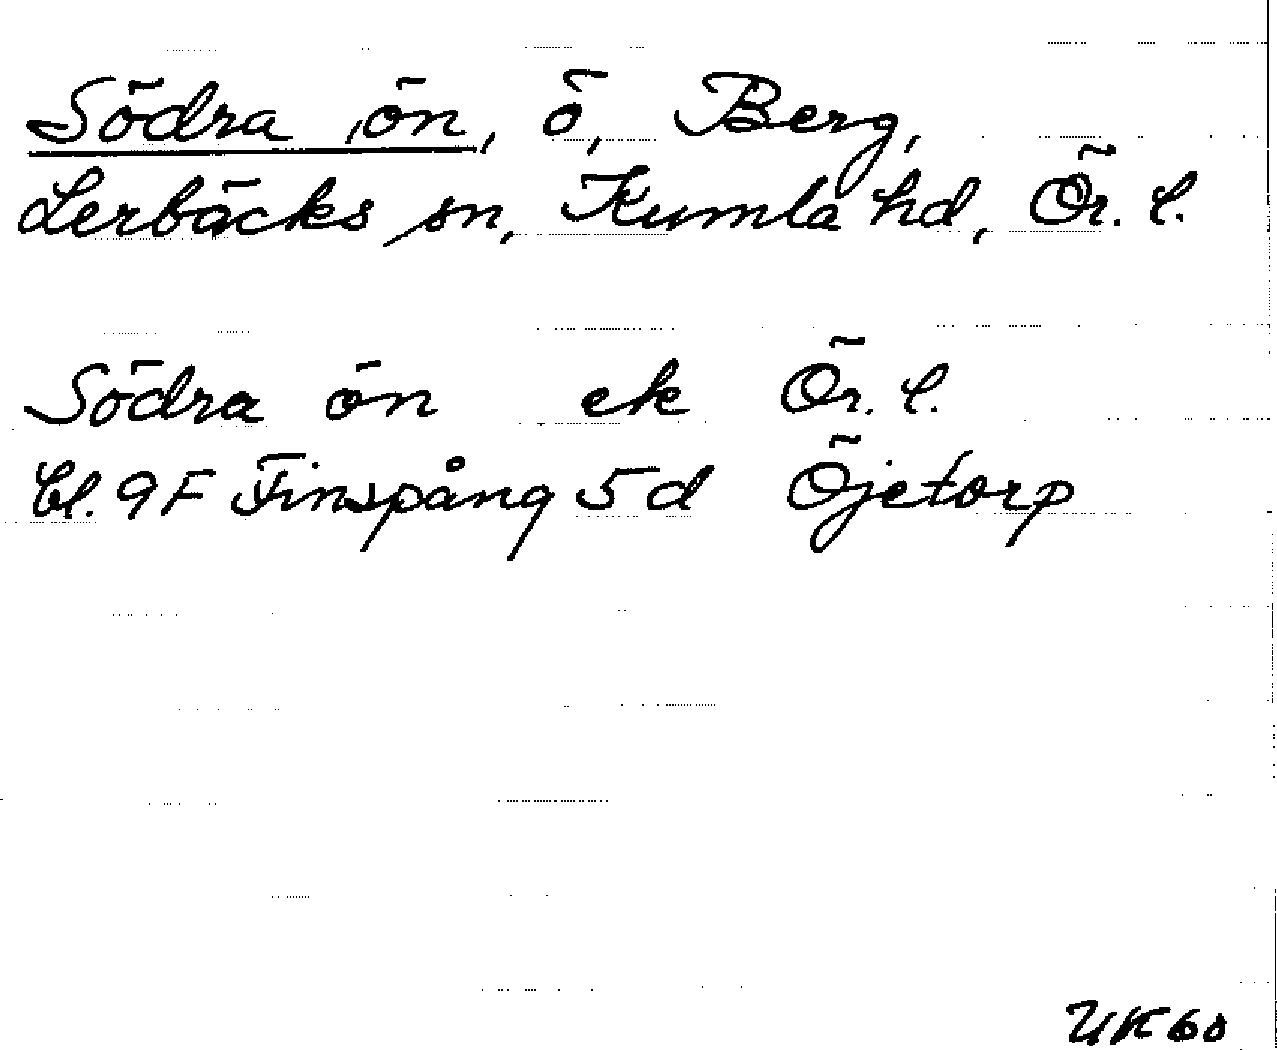 Södra ˌön, ö, Berg,
Lerbäcks sn, Kumla hd, Ör. l.
Södra ön ek Ör. l.
bl. 9F Finspång 5d Öjetorp
UK 60